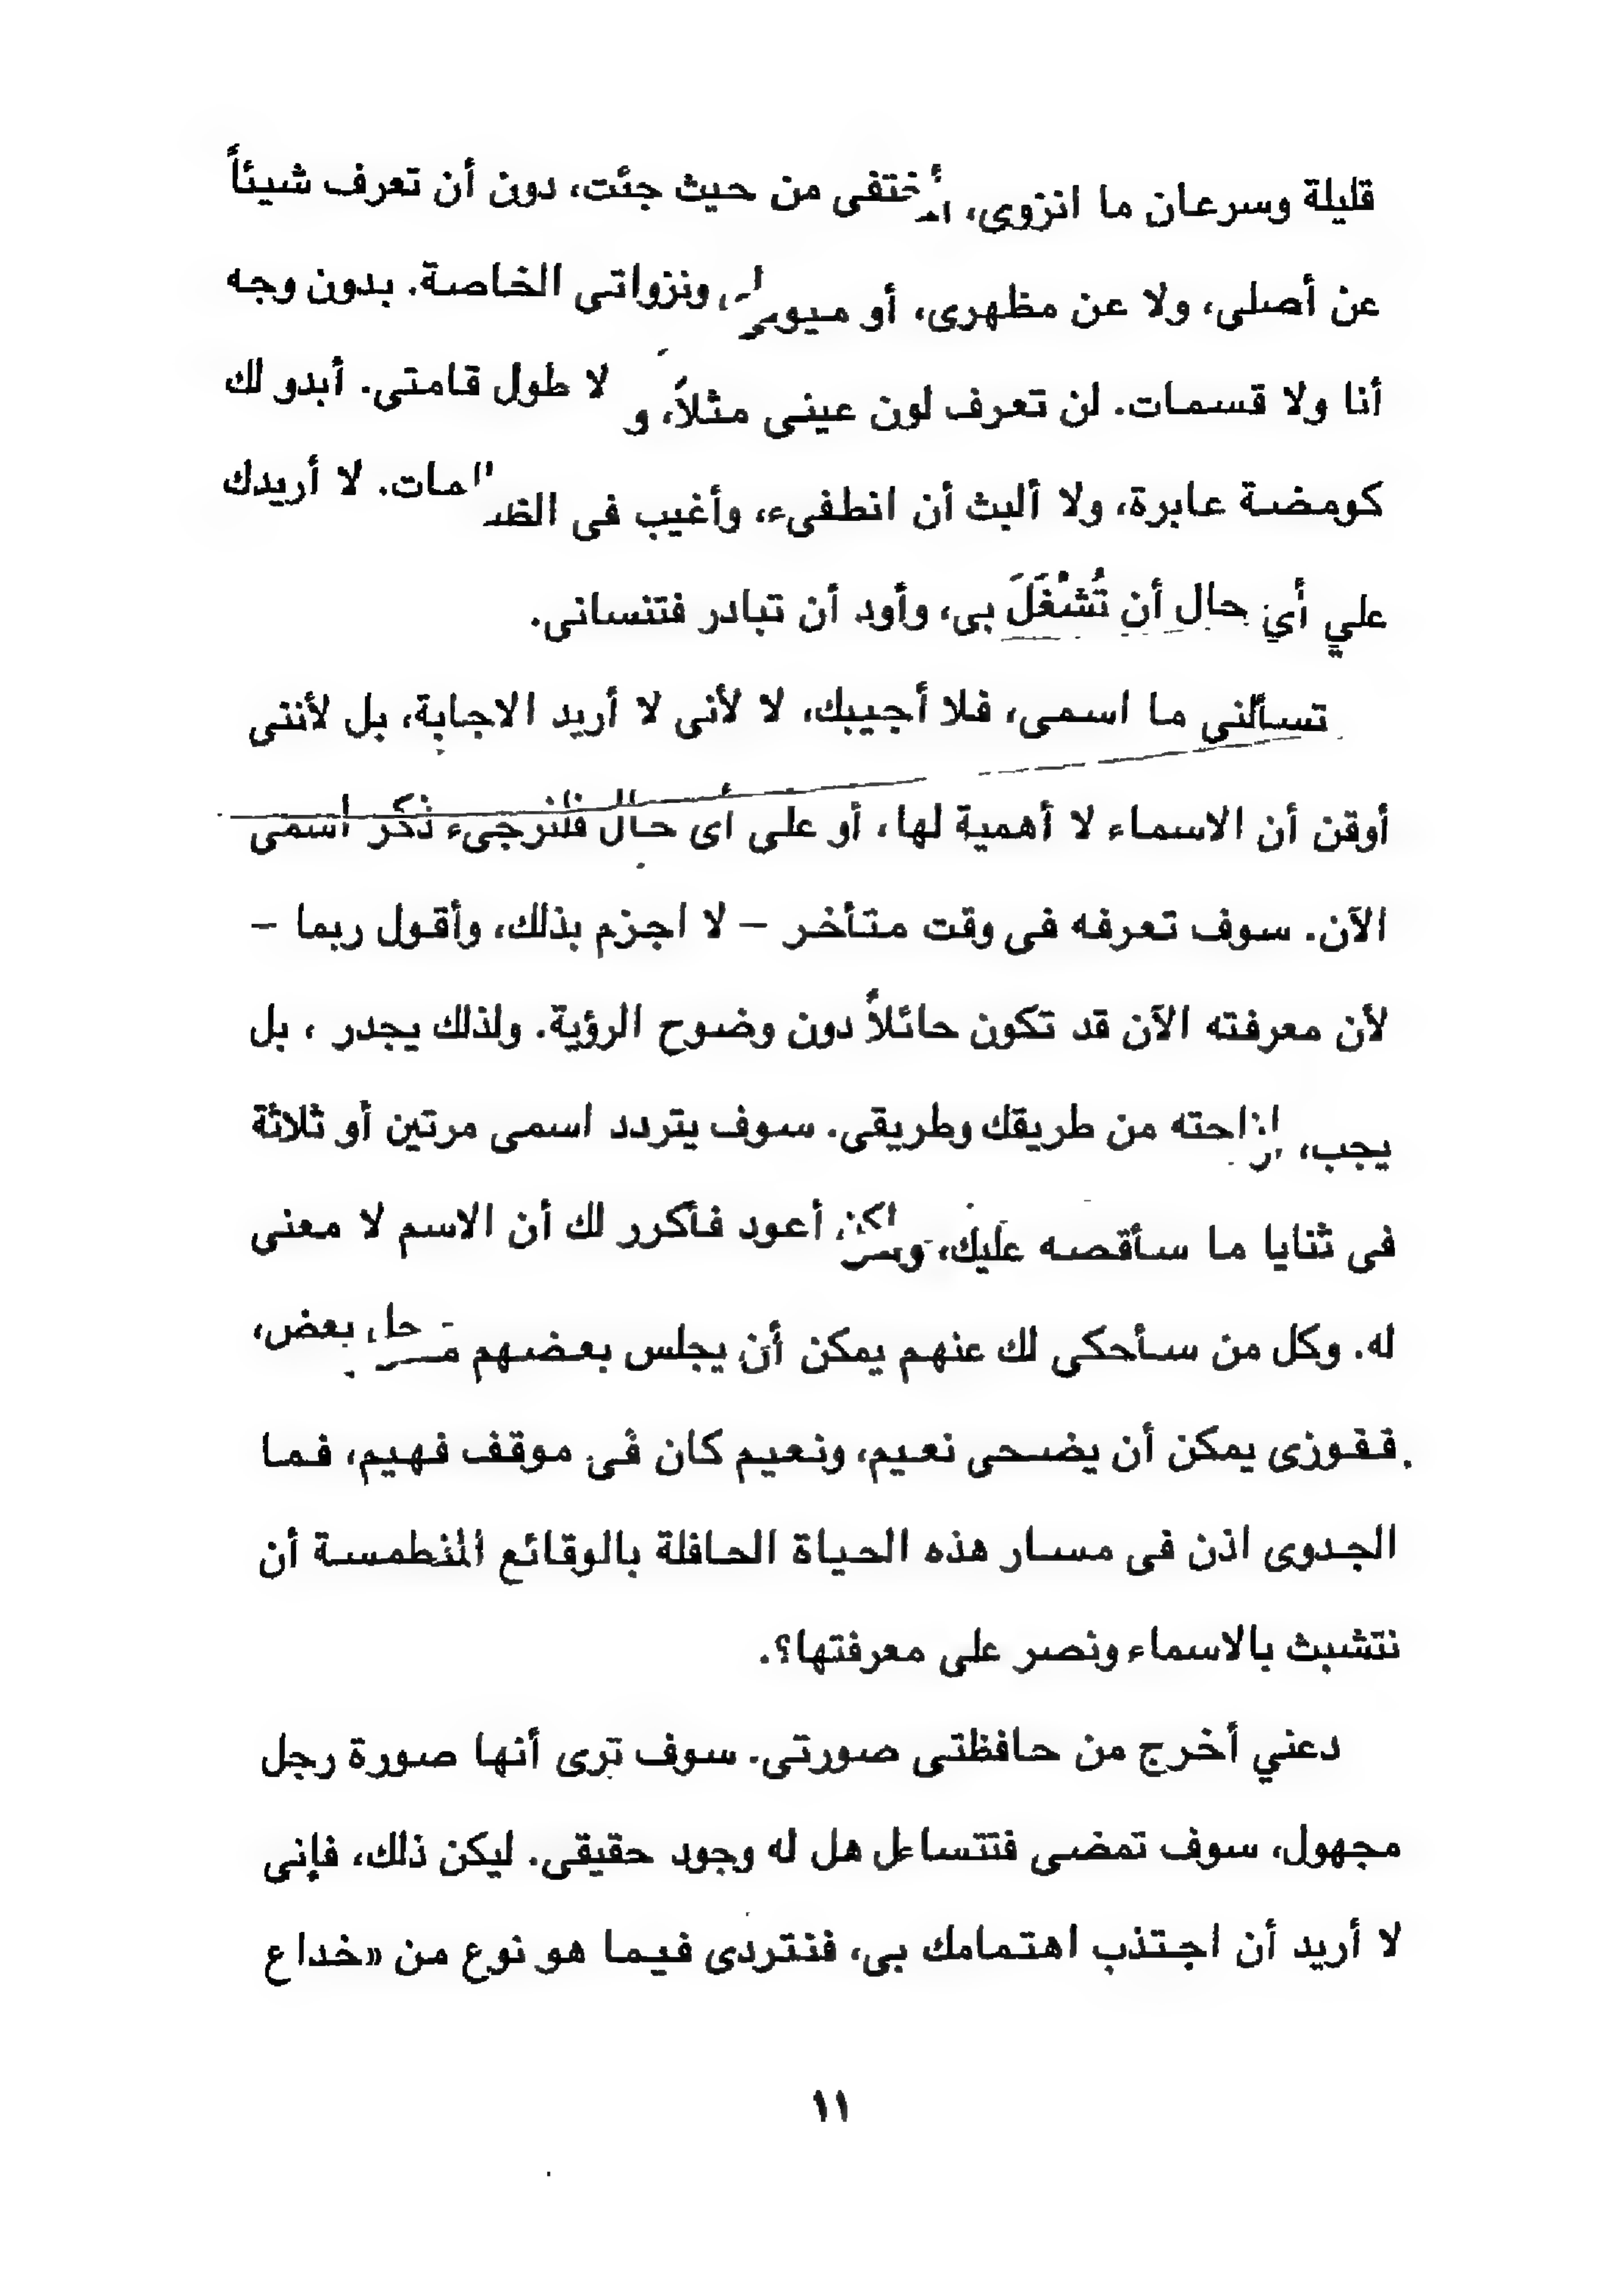 قليلة وسرعان ما انزوى، أختفى من حيث جئت، دون أن تعرف شيئاً
عن أصلى، ولا عن مظهرى، أو ميولى ونزواتى الخاصة. بدون وجه
أنا ولا قسمات. لن تعرف لون عينى مثلاً، و لا طول قامتى. أبدو لك
كومضة عابرة، ولا ألبث أن انطفىء، وأغيب فى الظلمات. لا أريدك
علي أي حال أن تُشْغَلَ بى، وأود أن تبادر فتنسانى.
تسألنى ما اسمى، فلا أجيبك، لا لأنى لا أريد الاجابة، بل لأننى
أوقن أن الاسماء لا أهمية لها، أو على أى حال فلنرجىء ذكر اسمى
الآن. سوف تعرفه فى وقت متأخر – لا اجزم بذلك، وأقول ربما –
لأن معرفته الآن قد تكون حائلاً دون وضوح الرؤية. ولذلك يجدر ، بل
يجب، ازاحته من طريقك وطريقى. سوف يتردد اسمى مرتين أو ثلاثة
فى ثنايا ما سأقصه عليك، ولكن أعود فأكرر لك أن الاسم لا معنى
له. وكل من سأحكى لك عنهم يمكن أن يجلس بعضهم محل بعض،
ففوزى يمكن أن يضحى نعيم، ونعيم كان فى موقف فهيم، فما
الجدوى اذن فى مسار هذه الحياة الحافلة بالوقائع المنطمسة أن
نتشبث بالاسماء ونصر على معرفتها؟.
دعني أخرج من حافظتى صورتى. سوف ترى أنها صورة رجل
مجهول، سوف تمضى فتتساءل هل له وجود حقيقى. ليكن ذلك، فإنى
لا أريد أن اجتذب اهتمامك بى، فنتردى فيما هو نوع من «خداع
١١